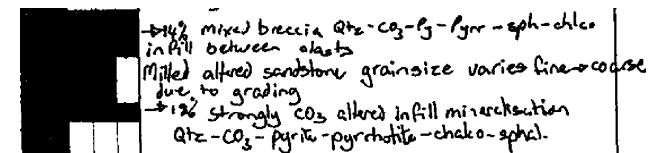 →14% mixed breccia Qtz-CO3-Py-Pyrr-sph-chlco
infill between clasts
Milled altered sandstone grainsize varies fine→coarse
due to grading
→1% strongly CO3 altered infill mineralisation
Qtz-CO3-pyrite-pyrrhotite-chalco-sphal.